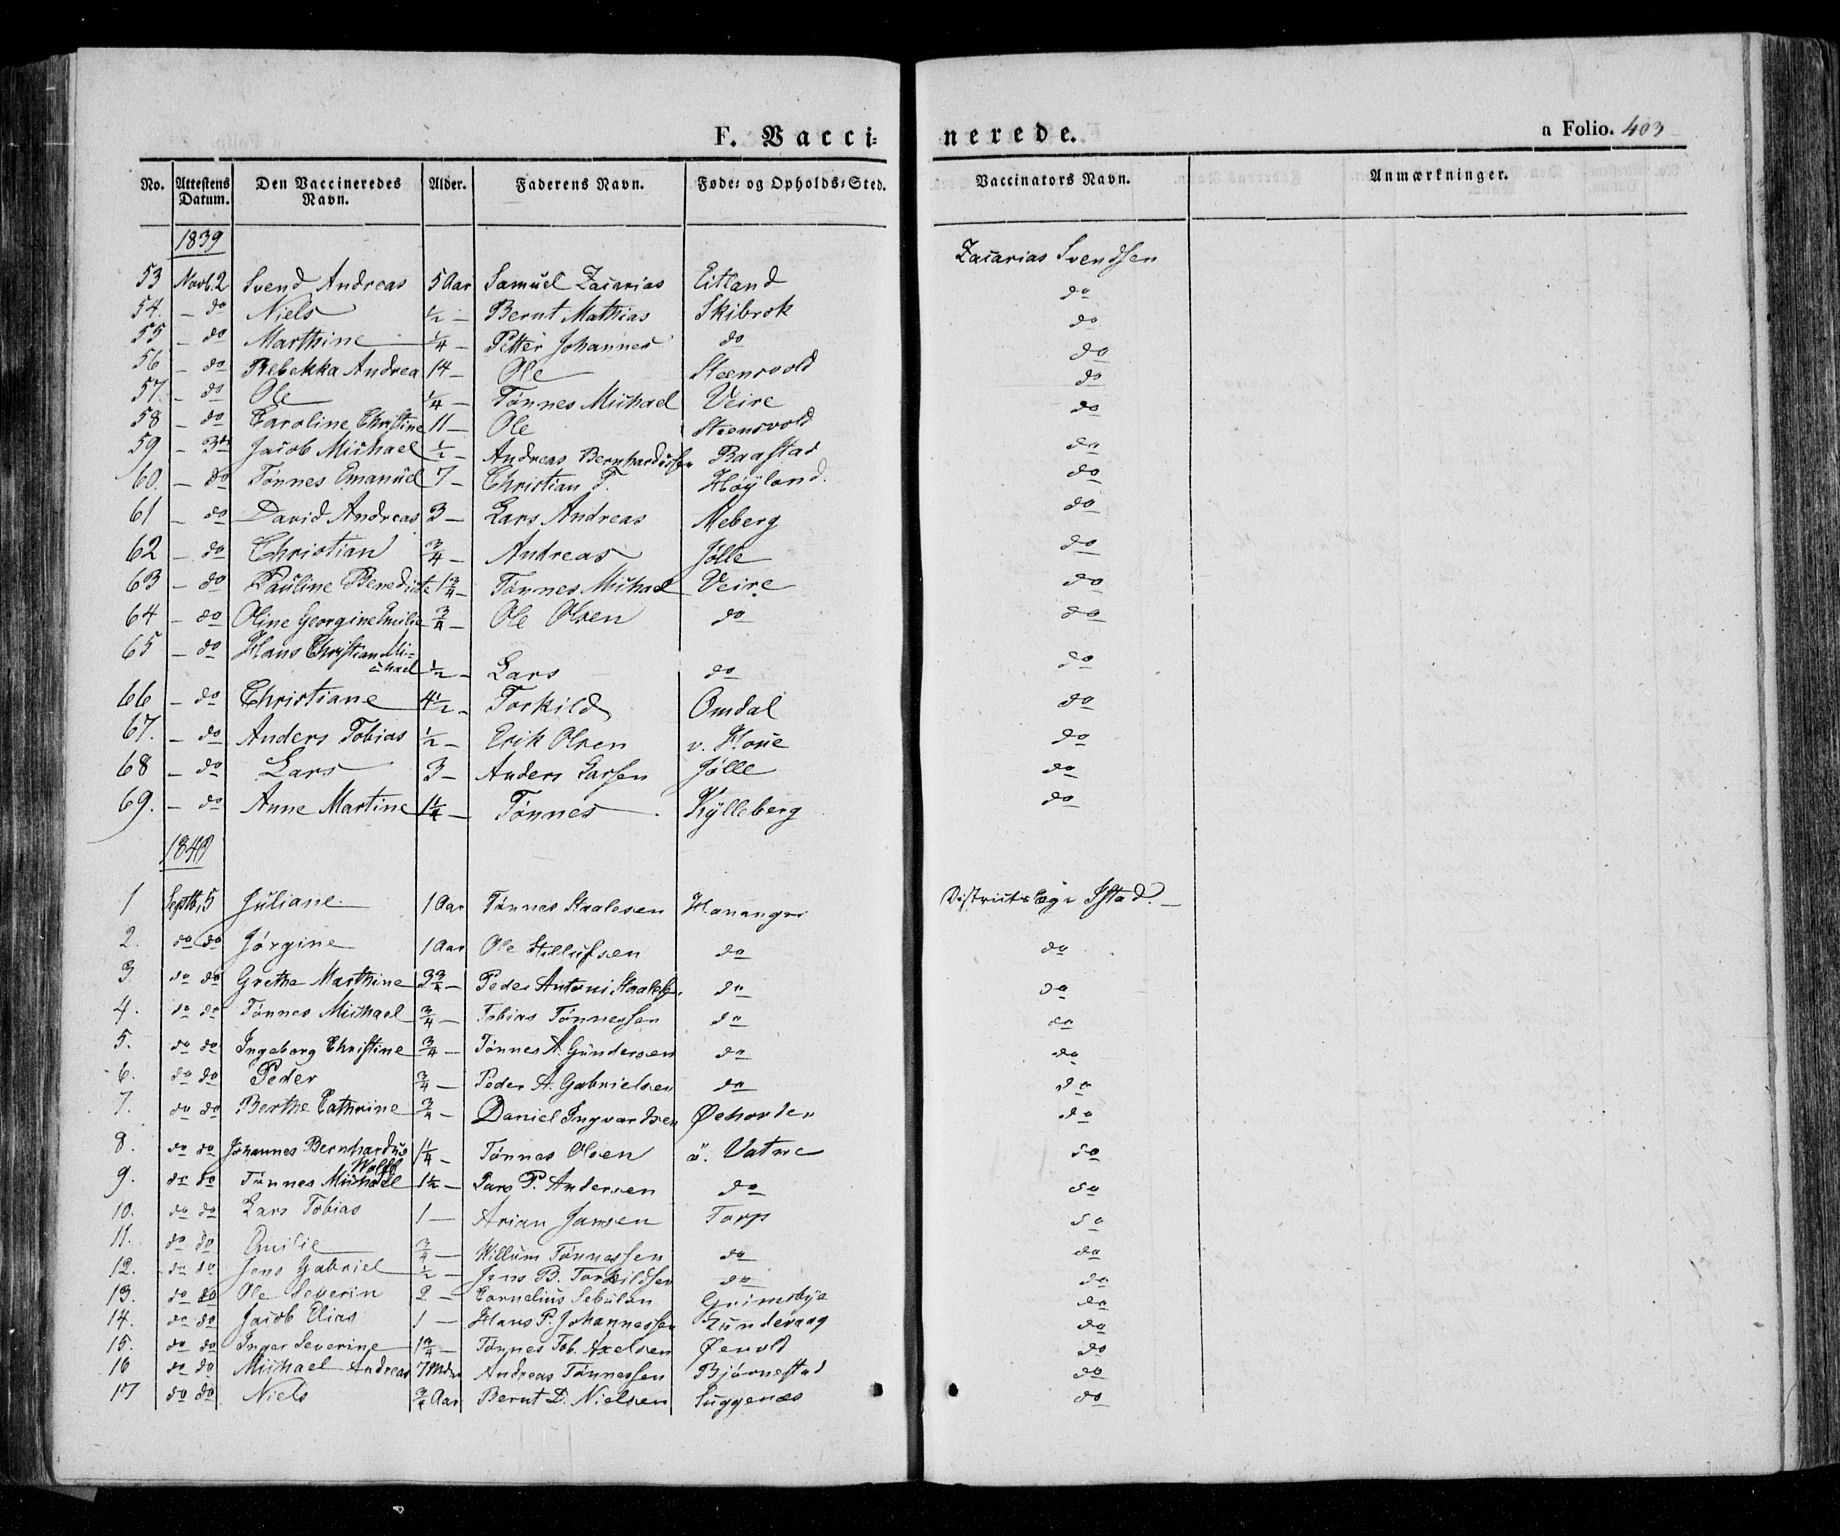 F. Vacci- nerede. a Folio. 403
No. Attestens Datum. Den Vaccineredes Navn. Alder. Faderens Navn. Føde- og Opholds-Sted. Vaccinators Navn. Anmærkninger.
1839
53 Novb. 2 Svend Andreas 5 Aar Samuel Zacarias Eitland Zacarias Svendsen
54. - do Niels 1/2 - Bernt Mathias Skibrok do
55 - do Marthine 1/4 - Petter Johannes do do
56 - do Rebekka Andrea 14 - Ole Steensvold do
57. - do Ole 1/4 - Tønnes Michael Veire do
58 - do Caroline Christine 11 - Ole Steensvold do
59 - 3die Jacob Michael 1/2 - Andreas Bernhardussen Raastad do
60. - do Tønnes Emanuel 7 - Christian T. Høyland. do
61 - do David Andreas 3 - Lars Andreas Meberg do
62 - do Christian 3/4 - Andreas Jølle do
63 - do Pauline Benedicte 1 3/4 - Tønnes Michael Veire do
64 - do Oline Georgine Emilie 3/4 - Ole Olsen do do
65 - do Hans Christian Mi-
chael 1/2 - Lars do do
66 - do Christiane 4 1/2 - Torkild Omdal do
67. - do Anders Tobias 1/2 - Erik Olsen v. Houe do
68 - do Lars 3 - Anders Larsen Jølle do
69. - do Anne Martine 1 1/4 - Tønnes Kylleberg do
1840
1 Septb. 5 Juliane 1 Aar Tønnes Staalesen Hananger Districtslæge Ystad.
2. do do Jørgine 1 Aar Ole Stellufsen do do
3. do do Grethe Marthine 3 3/4 - Peder Antoni Staales. do do
4. do do Tønnes Michael 3/4 - Tobias Tønnessen do do
5. do do Ingeborg Christine 3/4 - Tønnes A. Gundersen do do
6. do do Peder 3/4 - Peder A. Gabrielsen do do
7. do do Berthe Cathrine 3/4 - Daniel Ingvardsen do
8. do do Johannes Bernhardus
Wolff 1/4 - Tønnes Olsen ö. Vatne do
9. do do Tønnes Michael 1 1/2 - Lars P. Andersen do do
10. do do Lars Tobias 1 - Arian Jansen Torp do
11. do do Emilie 3/4 - Willum Tønnessen do do
12. do do Jens Gabriel 1/2 - Jens B. Torkildsen do do
13. do do Ole Severin 2 - Cornelius Sebulon Grimsbye do
14. do do Jacob Elias 1 - Hans P. Johannessen Lunderaag do
15. do do Inger Severine 1 3/4 - Tønnes Tob. Axelsen Øevold do
16 do do Michael Andreas 7 Mdr Andreas Tønnessen Bjørnestad do
17 do do Niels 3/4 Aar Bernt D. Nielsen Luggenæs do